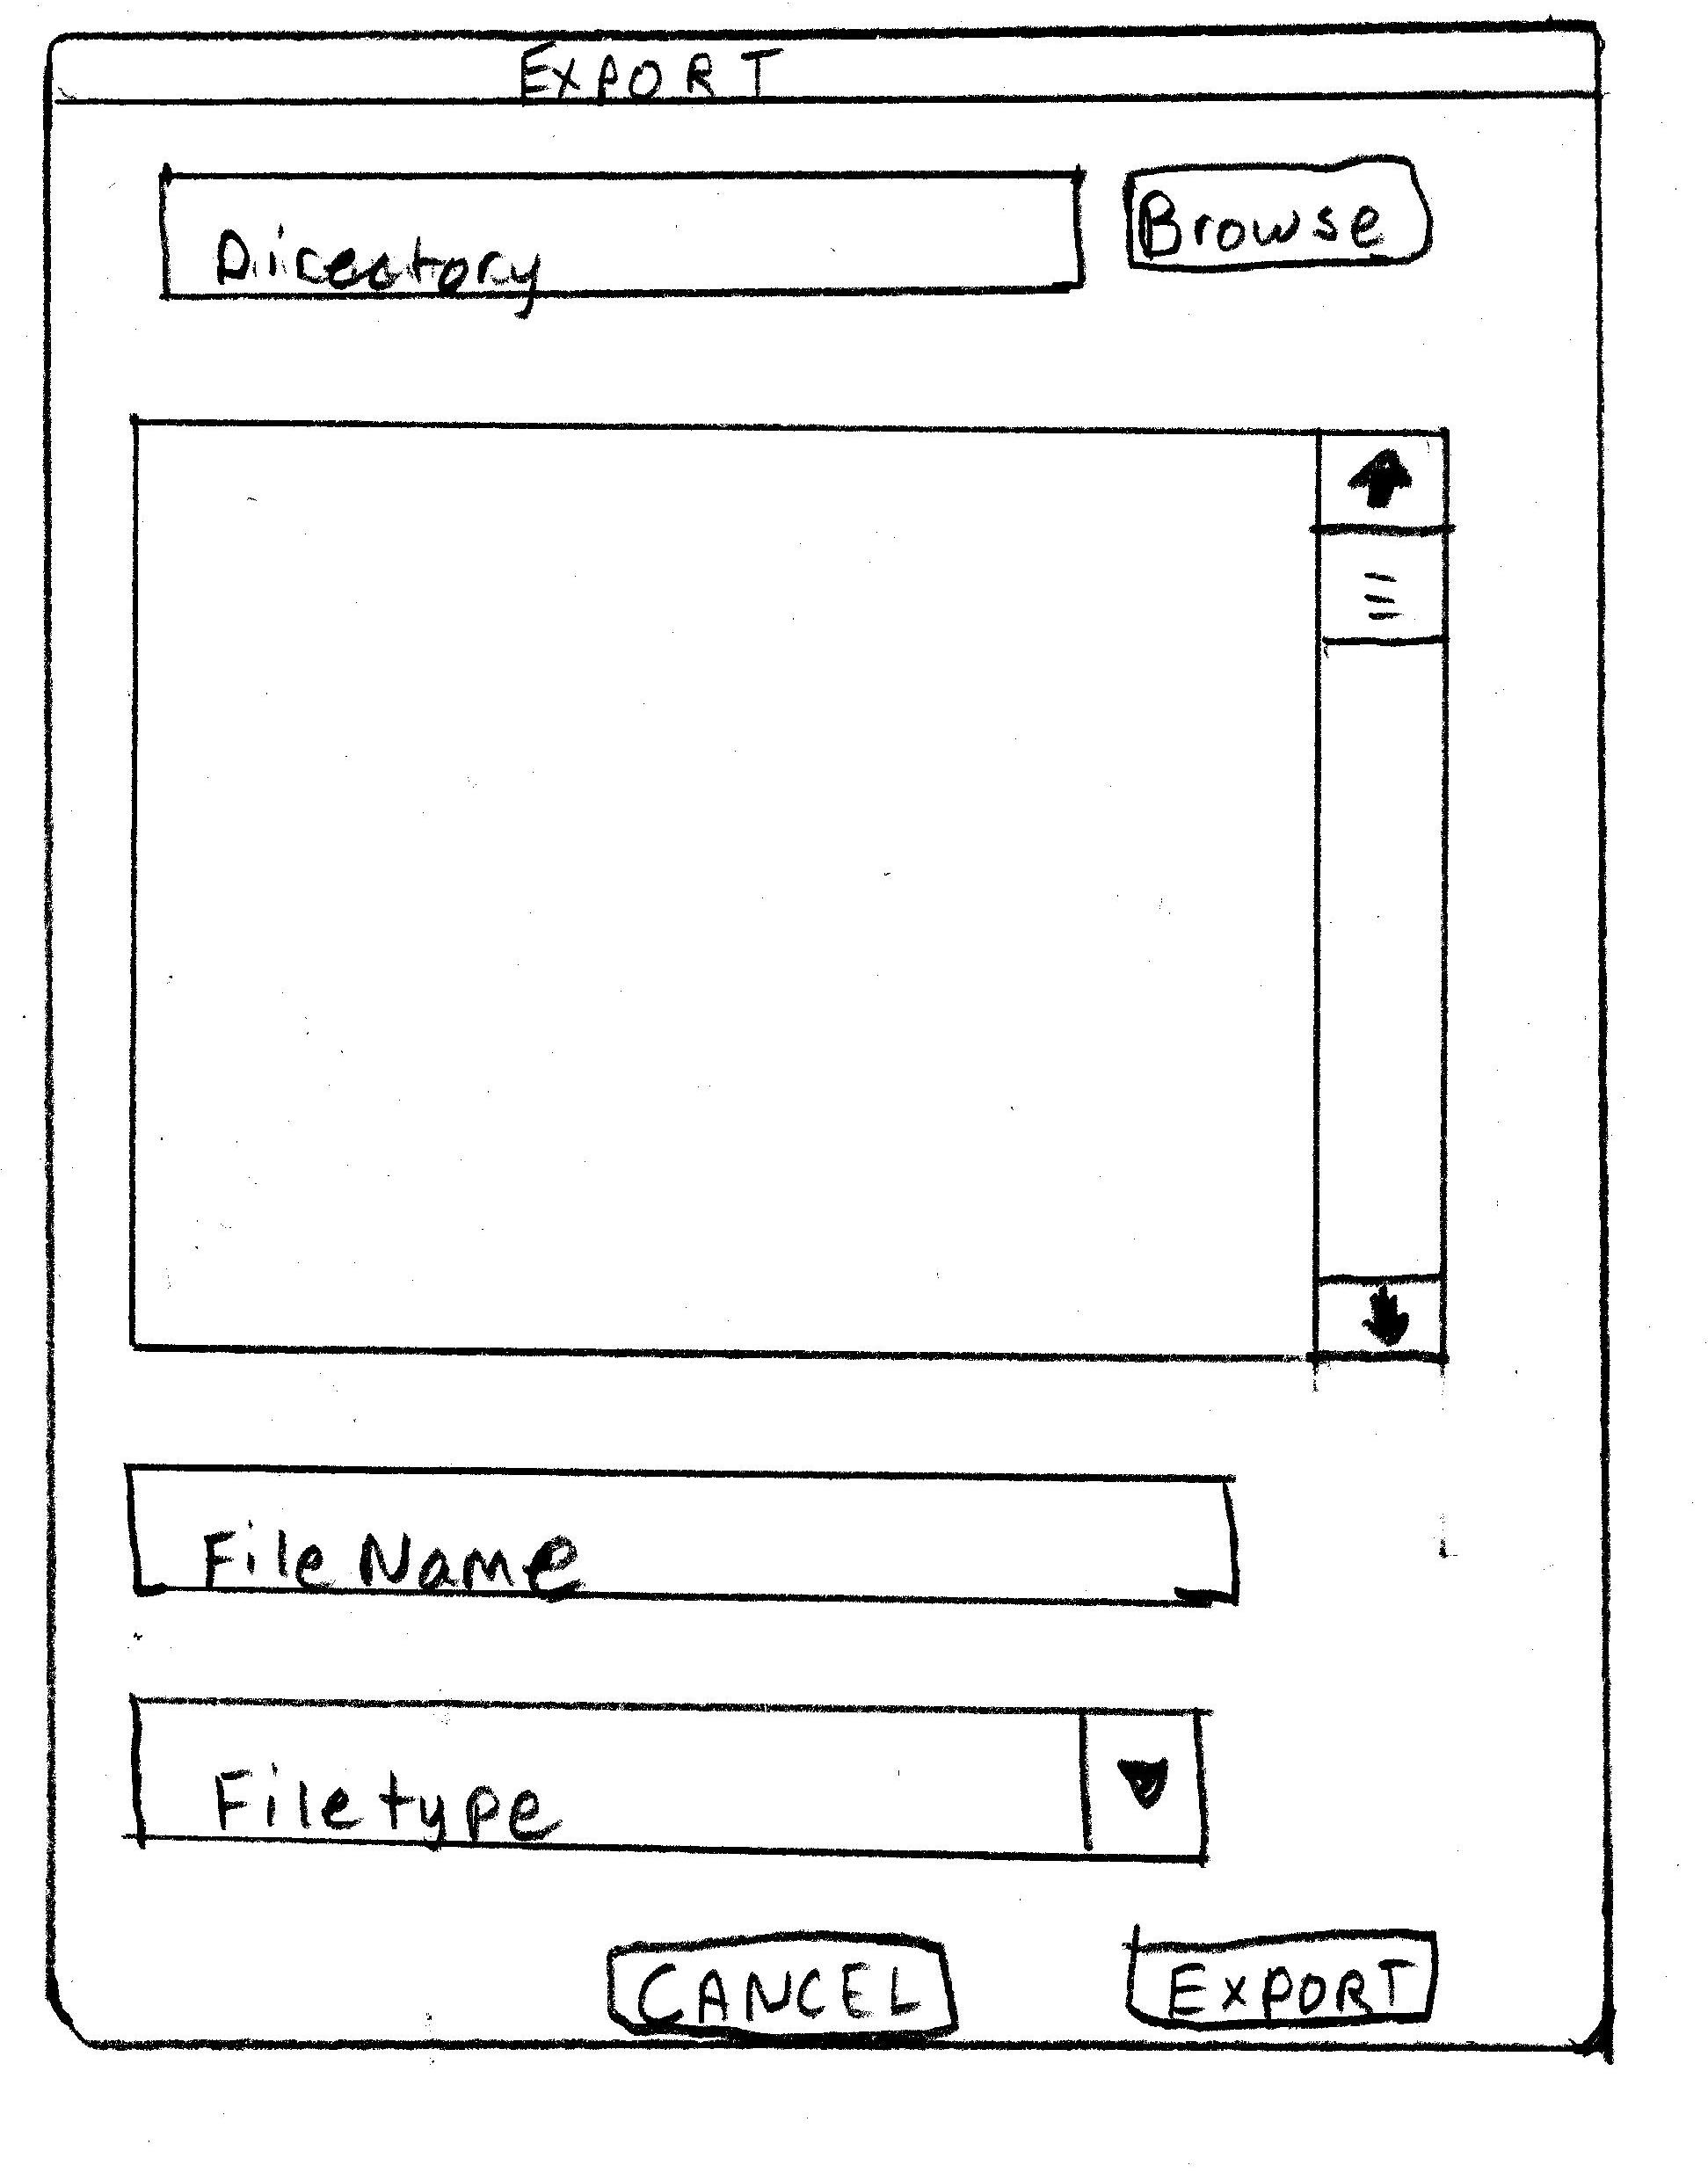 EXPORT
Directory
Browse
File Name
Filetype
CANCEL
EXPORT